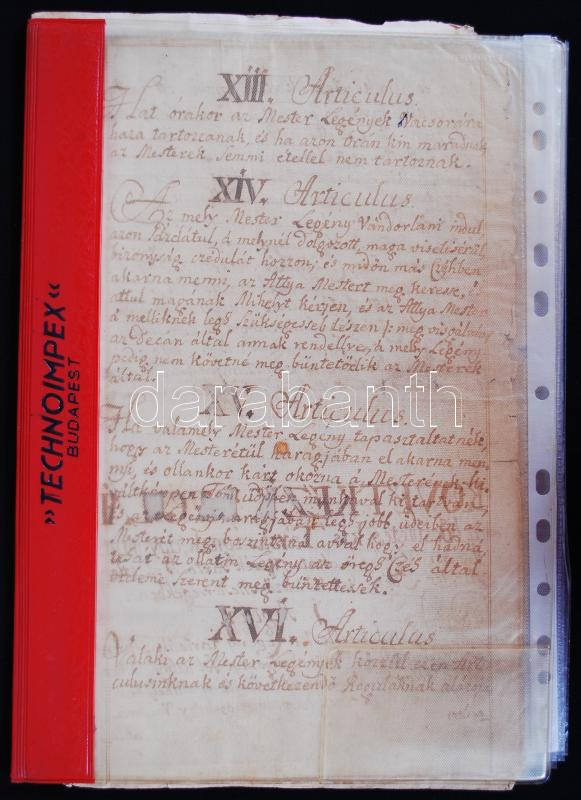 »TECHNOIMPEX«
BUDAPEST
XIII. Articulus.
Hat órakor az Mester Legények Vacsorára
haza tartozzanak, és ha azon órán kin maradnak
az Mesterek semmi étellel nem tartoznak.
XIV. Articulus.
Az mely Mester Legény Vándorlani indul
azon á melynél dolgozott, maga viselésérül
bizonyság czedulát hozzon, és midőn más Czéhben
akarna menni, az Attya Mestert meg keresse,
attul magának Mihelyt kérjen, és az Attya Mester
á melliknek legg Szükségesseb lészen
az Decan által annak rendellye, á mely Legény
pedig nem követné meg büntetődik az Mesterek
által.
darabanth
XV. Articulus.
Ha valamely Mester Legény tapasztaltatnék,
hogy az Mesterétül haragjában el akarna men
ni, és ollankor kárt okozna á Mesterének
üdőben munkával
és á Legény haragjában legg jobb üdeiben az
Mesterit meg boszújtaná avval hogy el hadná
tehát az ollatin Legény az öregg Czéh által
érdeme szerent meg büntettessék.
XVI. Articulus
Valaki az Mester Legények közzül ezen Arti
culusinknak és következendő Reguláknak